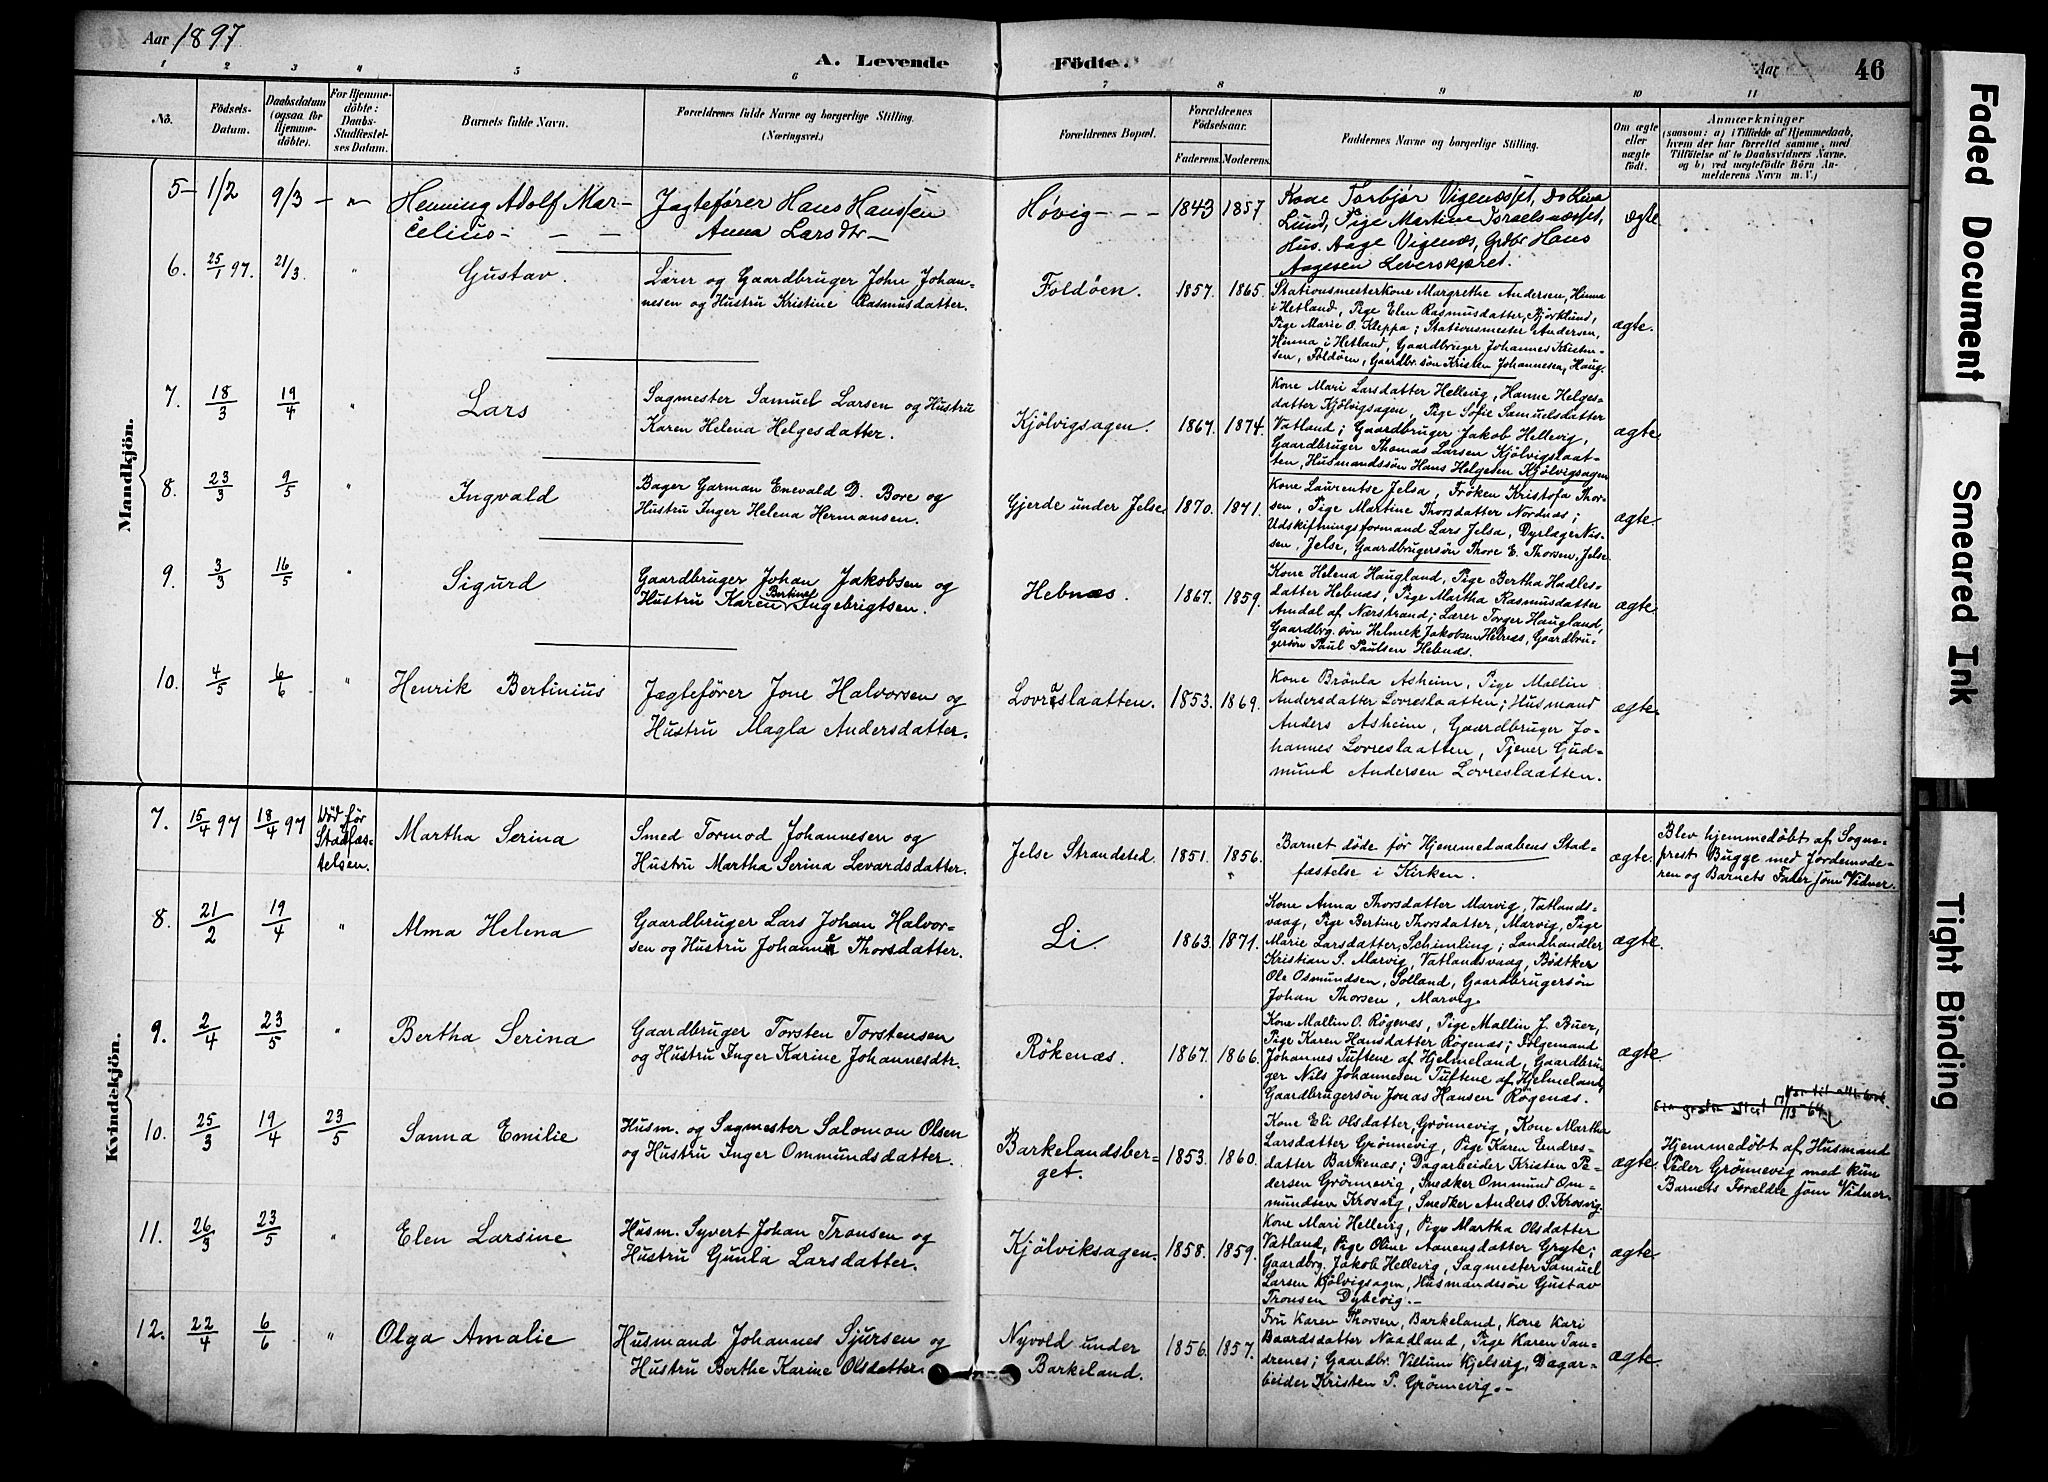 Aar 1897
A. Levende Födte.
Aar
46
1 2 3 4 5 6 7 8 9 10 11
No.
Födsels-Datum.
Daabsdatum (ogsaa for Hjemmedöbte).
For Hjemmedöbte: Daabs-Stadfæstelses Datum.
Barnets fulde Navn.
Forældrenes fulde Navne og borgerlige Stilling.
(Næringsvei.)
Forældrenes Bopæl.
Forældrenes Födselsaar.
Faderens. Moderens.
Faddernes Navne og borgerlige Stilling.
Om ægte eller uægte født.
Anmærkninger
(saasom: a) i Tilfælde af Hjemmedaab, hvem der har forrettet samme, med Tilföielse af to Daabsvidners Navne, og b) ved uægtefödte Börn Anmelderens Navn m. V.)
Mandkjön.
5- 1/2 9/3 - " - Henning Adolf Mar-
celius - - -
Jagtefører Hans Hanssen
Anna Larsdtr -
Høvig - - - 1843 1857
Kone Torbjør Vigenæsset, Do Lina
Lund, Pige Martine Israelsnæsset,
Hus. Aage Vigenæs, Grdbr Hans
Aagesen Leverskjæret.
ægte
6. 25/1 97. 21/3. " Gustav.
Lærer og Gaardbruger John Johan-
nesen og Hustru Kristine Rasmusdatter.
Foldöen. 1857. 1865.
Stationsmesterkone Margrethe Andersen, Hinna
i Hetland, Pige Elen Rasmusdatter, Bjorklund,
Pige Marie O. Kleppa; Stationsmester Andersen,
Hinna i Hetland, Gaardbruger Johannes Kristen-
sen, Foldöen, Gaardbr. sön Kristen Johannesen, Haug.
ægte.
7. 18/3 19/4 " Lars
Sagmester Samuel Larsen og Hustru
Karen Helena Helgesdatter.
Kjölvigsagen. 1867. 1874.
Kone Mari Larsdatter Hellevig, Hanne Helges-
datter Kjölvigsagen, Pige Sofie Samuelsdatter
Vatland; Gaardbruger Jakob Hellevig,
Gaardbruger Thomas Larsen Kjölvigslaat-
ten, Husmandssön Hans Helgesen Kjölvigsagen
ægte.
8. 23/3 9/5 " Ingvald
Bager Garman Enevald D. Bore og
Hustru Inger Helena Hermansen.
Gjerde under Jelse 1870. 1871.
Kone Laurentse Jelsa, Fröken Kristofa Thor-
sen, Pige Martine Thorsdatter Nordnæs;
Udskiftningsformand Lars Jelsa, Dyrlæge Nus-
sen, Jelse, Gaardbrugersön Thore E. Thorsen, Jelse.
ægte.
9. 3/3 16/5 " Sigurd
Gaardbruger Johan Jakobsen og
Hustru Karen Bertine Ingebrigtsen.
Hebnæs. 1867. 1859.
Kone Helena Haugland, Pige Bertha Hadles-
datter Hebnæs, Pige Martha Rasmusdatter
Amdal af Nærstrand; Lærer Torger Haugland,
Gaardbrg. sön Helmek Jakobsen Hebnæs, Gaardbru-
gersön Paul Paulsen Hebnæs.
ægte.
10. 4/5 6/6 " Henrik Bertinius
Jægtefører Jone Halvorsen og
Hustru Magla Andersdatter.
Lovraslaatten. 1853. 1869.
Kone Brönla Asheim, Pige Mallin
Andersdatter Lovreslaatten; Husmand
Anders Asheim, Gaardbruger Jo-
hannes Lovreslaatten, Tjener Gud-
mund Andersen Lovreslaatten.
ægte.
Kvindekjön.
7. 15/4 97 18/4 97 Död før
Stadfæs-
telsen.
Martha Serina
Smed Tormod Johannesen og
Hustru Martha Serina Levardsdatter.
Jelse Strandsted. 1851. 1856.
Barnet døde før Hjemmedaabens Stad-
fæstelse i Kirken.
ægte.
Blev hjemmedöbt af Sogne-
prest Bugge med Jordemode-
ren og Barnets Fader som Vidner.
8. 21/2 19/4 " Alma Helena
Gaardbruger Lars Johan Halvor-
sen og Hustru Johanne Thorsdatter.
Li. 1863. 1871.
Kone Anna Thorsdatter Marvig, Vatlands-
vaag, Pige Bertine Thorsdatter, Marvig, Pige
Marie Larsdatter, Schimling; Landhandler
Kristian S. Marvig, Vatlandsvaag, Bödtker
Ole Osmundsen, Solland, Gaardbrugersön
Johan Thorsen, Marvig.
ægte.
9. 2/4 23/5 " Bertha Serina
Gaardbruger Torsten Torstensen
og Hustru Inger Karine Johannesdtr.
Rökenæs. 1867. 1866.
Kone Mallin O. Røgenæs, Pige Mallin J. Buer,
Pige Karen Hansdatter Røgenæs; Følgemand
Johannes Tuftene af Hjelmeland, Gaardbru-
ger Nils Johannesen Tuftene af Hjelmeland,
Gaardbrugersön Jonas Hansen Røgenæs.
ægte
10. 25/3 19/4 23/5 Sanna Emilie
Husm. og Sagmester Salomon Olsen
og Hustru Inger Ommundsdatter.
Barkelandsber-
get. 1853. 1860.
Kone Eli Olsdatter, Grönnevig, Kone Martha
Larsdatter Grönnevig, Pige Karen Endres-
datter Barkenæs; Dagarbeider Kristen Pe-
dersen Grönnevig, Snedker Ommund Om-
mundsen Krosvig, Snedker Anders O. Krosvig.
ægte.
Hjemmedöbt af Husmand
Peder Grönnevig med kun
Barnets Forældre som Vidner.
11. 26/3 23/5 " Elen Larsine
Husm. Syvert Johan Tronsen og
Hustru Gunla Larsdatter.
Kjölviksagen. 1858. 1859.
Kone Mari Hellevig, Pige Martha Olsdatter
Vatland, Pige Oline Aanensdatter Gryte;
Gaardbrg. Jakob Hellevig, Sagmester Samuel
Larsen Kjölvigsagen, Husmandssön Gustav
Tronsen Dybevig.-
ægte.
12. 22/4 6/6 " Olga Amalie
Husmand Johannes Sjursen og
Hustru Berthe Karine Olsdatter.
Nyvold under
Barkeland. 1856. 1857.
Fru Karen Thorsen, Barkeland, Kone Kari
Baardsdatter Naadland, Pige Karen Tan-
drenes; Gaardbr. Villum Kjelsvig, Dagar-
beider Kristen P. Grönnevig.-
ægte.
Faded Document
Smeared Ink
Tight Binding